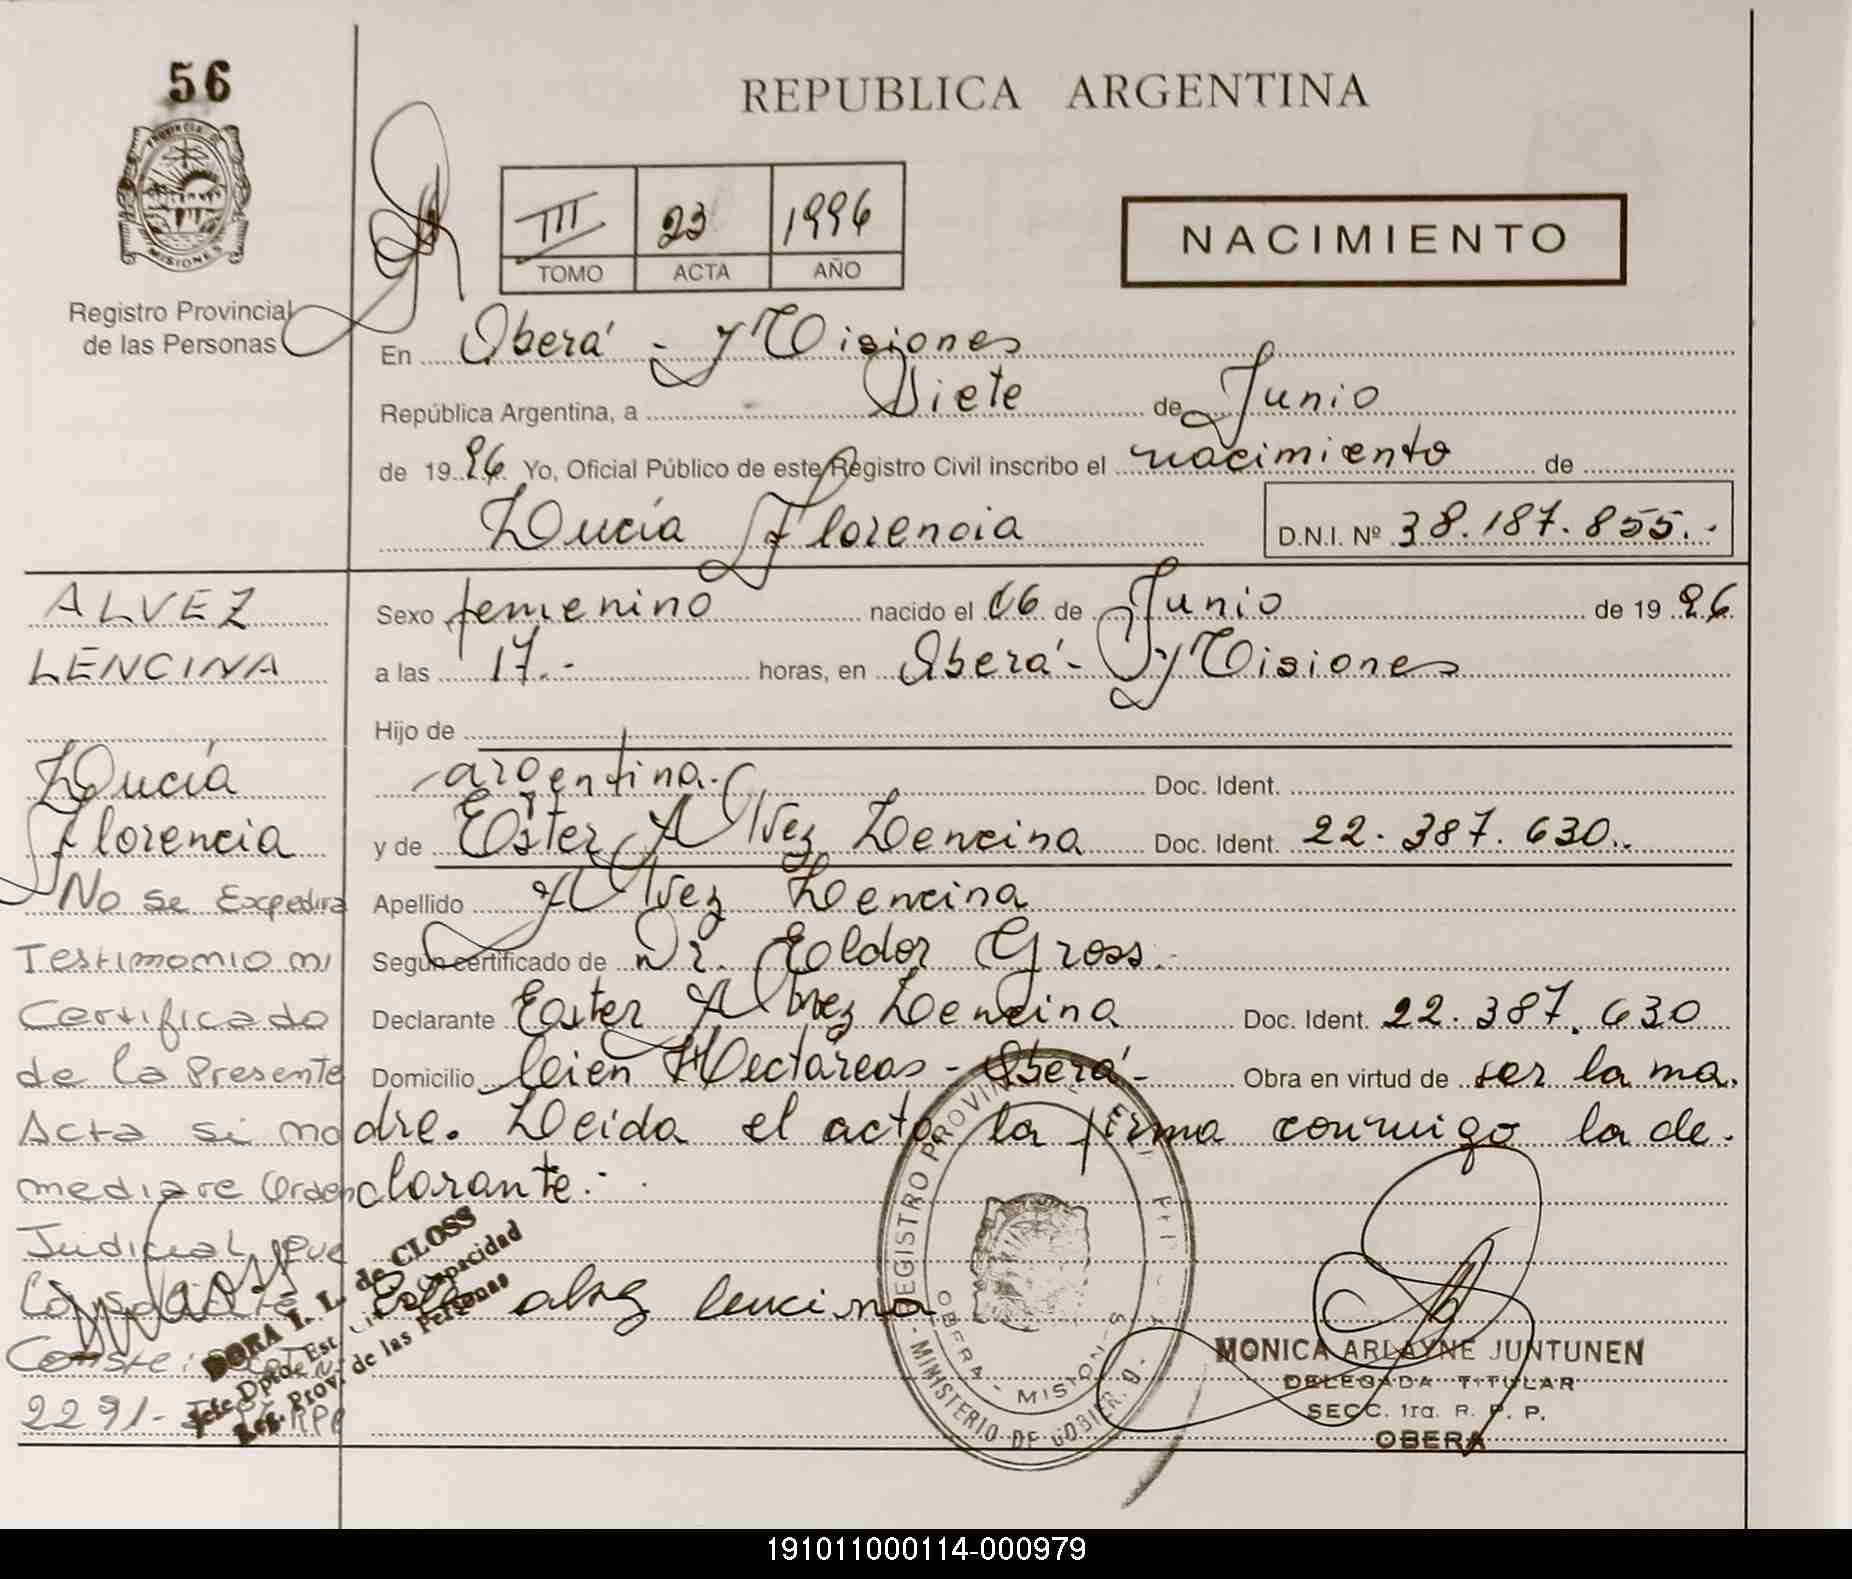 56
REPUBLICA ARGENTINA
PROVINCIA D MISIONES
III 23 1996
TOMO ACTA AÑO
NACIMIENTO
Registro Provincial
de las Personas
En Oberá - Misiones
República Argentina, a Siete de Junio
de 1996 Yo, Oficial Público de este Registro Civil inscribo el nacimiento de
Lucía Florencia D.N.I. Nº 38.187.855.-
ALVEZ
LENCINA
Lucía
Florencia
No se Expedira
Testimonio ni
Certificado
de la Presente
Acta si no
mediare Orden
Judicial que
Conste:
2291-
Sexo femenino nacido el 06 de Junio de 1996
a las 17.- horas, en Oberá - Misiones
Hijo de
argentina. Doc. Ident.
y de Ester Alvez Lencina Doc. Ident. 22.387.630..
Apellido Alvez Lencina
Según certificado de Dr. Eldor Gross.-
Declarante Ester Alvez Lencina Doc. Ident. 22.387.630
Domicilio Cien Hectáreas - Oberá - Obra en virtud de ser la ma.
dre. Leida el acta, la firma conmigo la de.
clarante.-
alvez lencina
DORA L. L. de CLOSS
Jefe Dpto. Est. Capacidad
Reg. Prov. de las Personas
REGISTRO PROVIN
OBERA - MISIONES
- MINISTERIO DE GOBIERNO -
MONICA ARLAYNE JUNTUNEN
DELEGADA TITULAR
SECC. 1ra. R. P. P.
OBERA
191011000114-000979